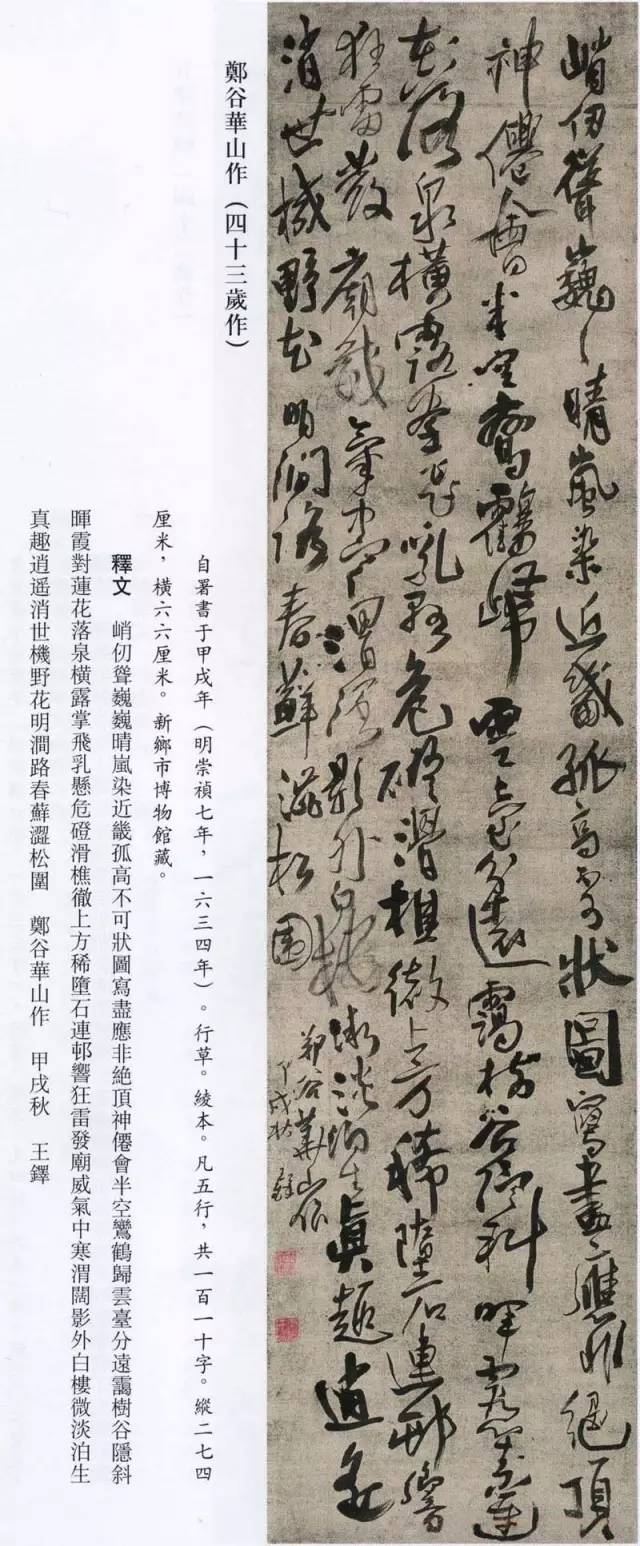 峭仞聳巍々晴嵐染近畿孤高不可狀圖寫盡應非絕頂
神僊會半空鸞鶴歸雲臺分遠靄樹谷隱斜暉霞對蓮
花落泉橫露掌飛乳懸危磴滑樵徹上方稀墮石連邨響
狂雷發廟威氣中寒渭闊影外白樓微淡泊生真趣逍遥
消世機野花明澗路春蘚澀松圍
鄭谷華山作
甲戌秋 王鐸
鄭谷華山作（四十三歲作）
自署書于甲戌年（明崇禎七年，一六三四年）。行草。綾本。凡五行，共一百一十字。縱二七四
厘米，橫六六厘米。新鄉市博物館藏。
釋文　峭仞聳巍巍晴嵐染近畿孤高不可狀圖寫盡應非絕頂神僊會半空鸞鶴歸雲臺分遠靄樹谷隱斜
暉霞對蓮花落泉橫露掌飛乳懸危磴滑樵徹上方稀墮石連邨響狂雷發廟威氣中寒渭闊影外白樓微淡泊生
真趣逍遥消世機野花明澗路春蘚澀松圍　鄭谷華山作　甲戌秋　王鐸